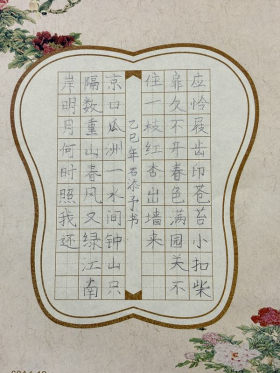 应怜屐齿印苍苔小扣柴
扉久不开春色满园关不
住一枝红杏出墙来
乙巳年石添予书
京口瓜洲一水间钟山只
隔数重山春风又绿江南
岸明月何时照我还